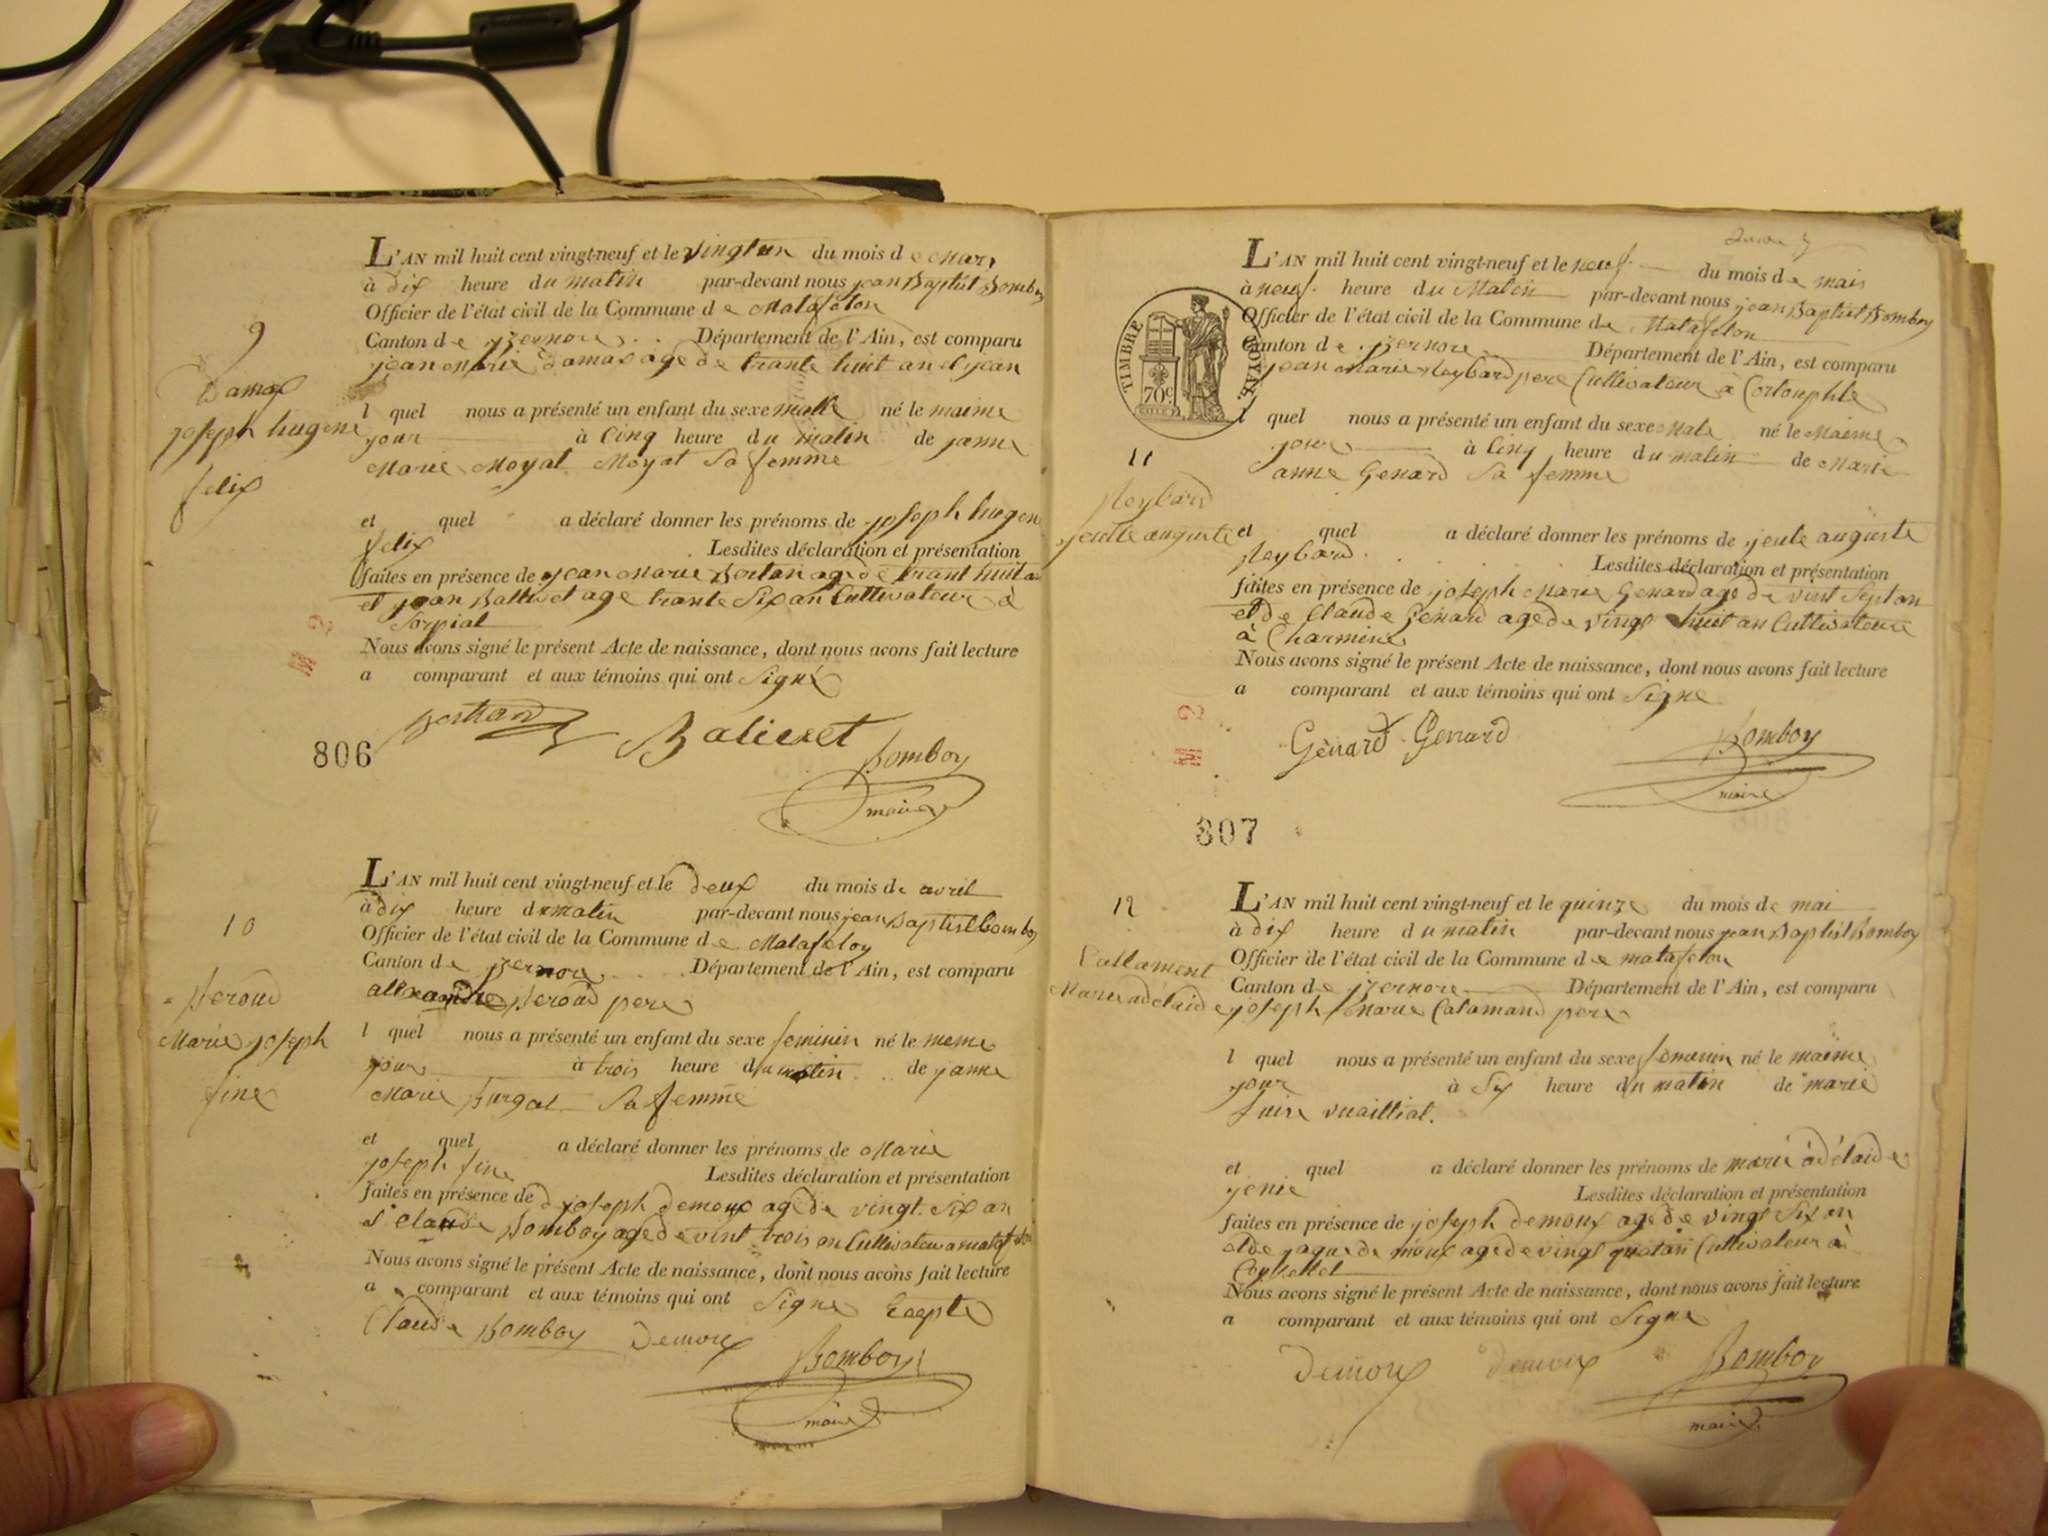 L'AN mil huit cent vingt-neuf et le vingt un du mois de mars
à dix heure du matin par-devant nous jean Baptist Bomboy
Officier de l'état civil de la Commune de Matafelon
Canton de yzernore Département de l'Ain, est comparu
jean Marie Damas age de trante huit an et jean
9
Damas
joseph hugene
felix
l quel nous a présenté un enfant du sexe malle né le maime
jour à cinq heure du matin de janne
Marie Moyat Moyat Sa femme
et quel a déclaré donner les prénoms de joseph hugen
felix Lesdites déclaration et présentation
faites en présence de jean Marie Bertan age de trant huit an
et jean age trante Six an Cultivateur à
Corpial
Nous avons signé le présent Acte de naissance, dont nous avons fait lecture
a comparant et aux témoins qui ont Signé
Bertrand Balivet Bomboy
maire
806
L'AN mil huit cent vingt-neuf et le deux du mois de avril
à dix heure du matin par-devant nous jean Baptist Bomboy
Officier de l'état civil de la Commune de Matafeloy
Canton de yzernore Département de l'Ain, est comparu
allexandre Beroud pere
10
Beroud
Marie joseph
fine
l quel nous a présenté un enfant du sexe feminin né le meme
jour à trois heure du matin de janne
Marie Burgat Sa femme
et quel a déclaré donner les prénoms de Marie
joseph fine Lesdites déclaration et présentation
faites en présence de joseph demoux age de vingt Six an
et Claude Bomboy age de vint trois an Cultivateur a matafelon
Nous avons signé le présent Acte de naissance, dont nous avons fait lecture
a comparant et aux témoins qui ont Signe Exepte
Claude Bomboy Demoux
Bomboy
maire
L'AN mil huit cent vingt-neuf et le neuf du mois de mais
à neuf heure du Matin par-devant nous jean Baptist Bomboy
Officier de l'état civil de la Commune de Matafelon
Canton de yzernore Département de l'Ain, est comparu
jean Marie Reybard pere Cultivateur à
TIMBRE ROYAL
70c
11
Reybard
jeulle auguste
l quel nous a présenté un enfant du sexe Male né le Maime
jour à Cinq heure du matin de Marie
anne Genard Sa femme
et quel a déclaré donner les prénoms de jeule auguste
Reybard Lesdites déclaration et présentation
faites en présence de joseph Marie Genard age de vint Sept an
et de Claude Genard age de vingt huit an Cultivateur
à Charmine
Nous avons signé le présent Acte de naissance, dont nous avons fait lecture
a comparant et aux témoins qui ont Signe
Genard Genard Bomboy
maire
807
L'AN mil huit cent vingt-neuf et le quinze du mois de mai
à dix heure du matin par-devant nous jean Baptist Bomboy
Officier de l'état civil de la Commune de matafelon
Canton de yzernore Département de l'Ain, est comparu
joseph Marie Calamand pere
12
Callament
Marie adélaide
l quel nous a présenté un enfant du sexe femenin né le maime
jour à Six heure du matin de marie
vuailliat.
et quel a déclaré donner les prénoms de marie adélaide
jenie Lesdites déclaration et présentation
faites en présence de joseph demoux age de vingt Six an
et de jaque de moux age de vingt quatan Cultivateur à
Nous avons signé le présent Acte de naissance, dont nous avons fait lecture
a comparant et aux témoins qui ont Signe
Demoux Demoux Bomboy
maire